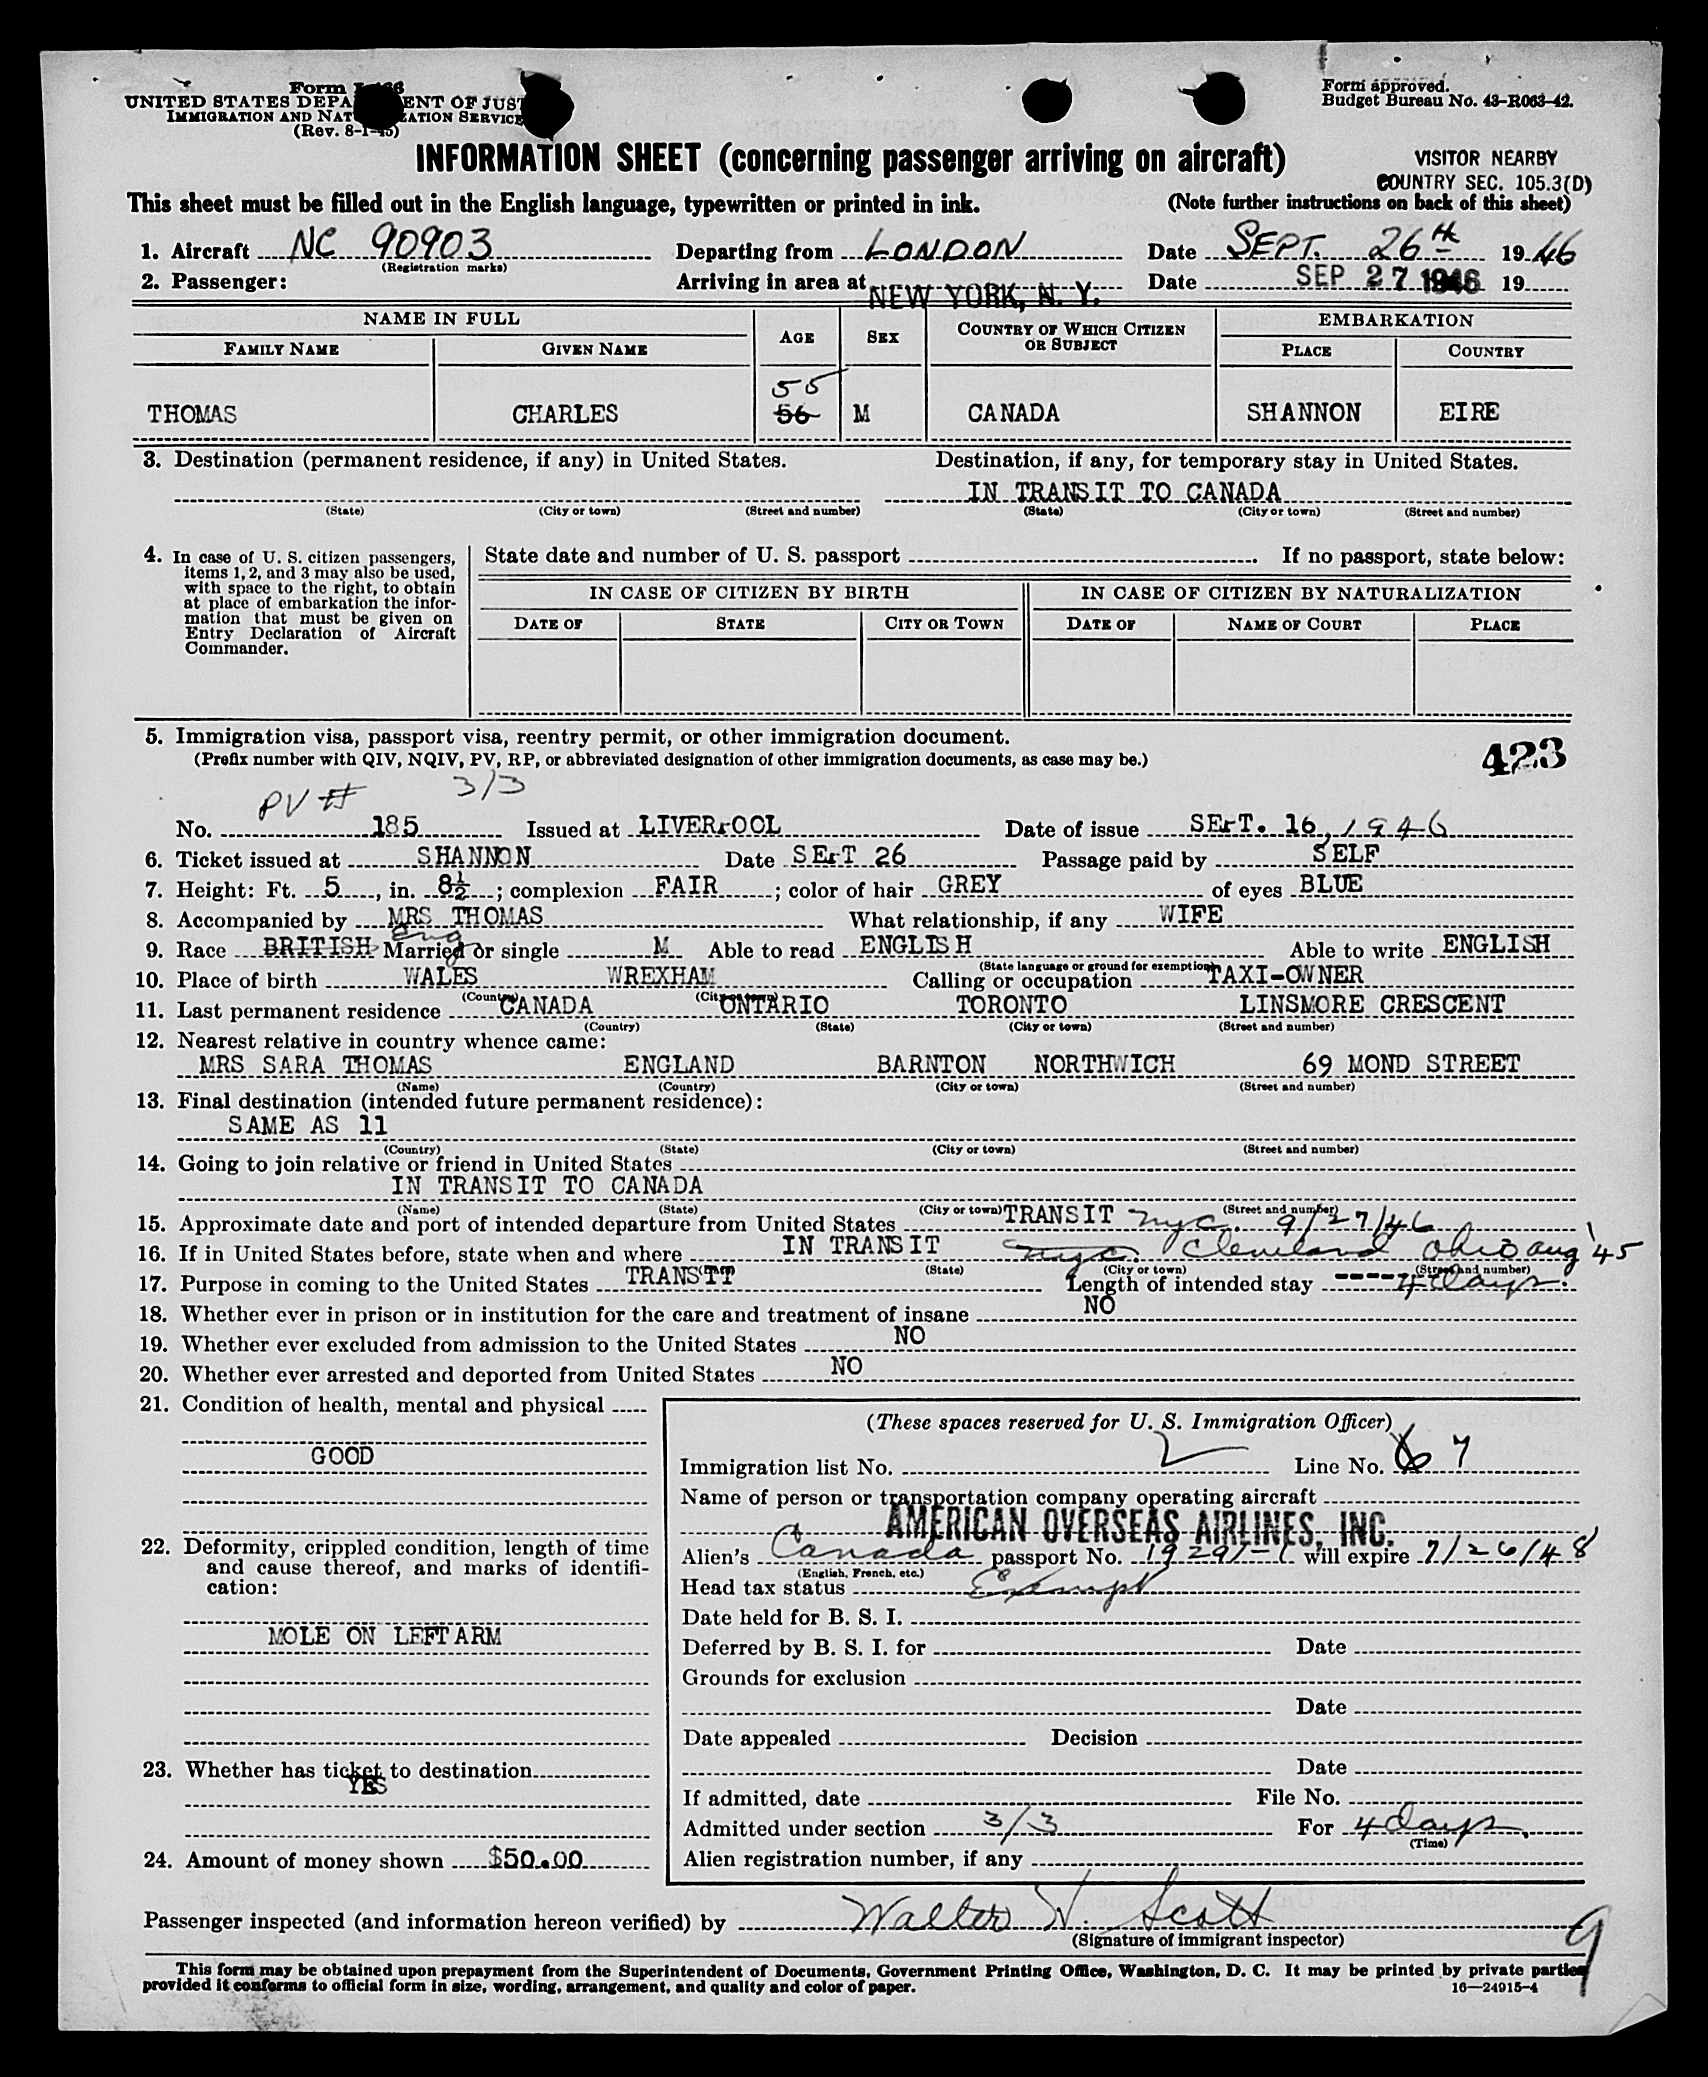 Form I-466
UNITED STATES DEPARTMENT OF JUSTICE
IMMIGRATION AND NATURALIZATION SERVICE
(Rev. 8-1-45)
Form approved.
Budget Bureau No. 43-R063-42.
INFORMATION SHEET (concerning passenger arriving on aircraft)
VISITOR NEARBY
COUNTRY SEC. 105.3(D)
This sheet must be filled out in the English language, typewritten or printed in ink. (Note further instructions on back of this sheet)
1. Aircraft NC 90903 Departing from LONDON Date SEPT. 26th 1946
(Registration marks)
2. Passenger: Arriving in area at NEW YORK, N. Y. Date SEP 27 1946 19
NAME IN FULL AGE SEX COUNTRY OF WHICH CITIZEN OR SUBJECT EMBARKATION
FAMILY NAME GIVEN NAME PLACE COUNTRY
55
THOMAS CHARLES 56 M CANADA SHANNON EIRE
3. Destination (permanent residence, if any) in United States. Destination, if any, for temporary stay in United States.
IN TRANSIT TO CANADA
(State) (City or town) (Street and number) (State) (City or town) (Street and number)
4. In case of U. S. citizen passengers, items 1, 2, and 3 may also be used, with space to the right, to obtain at place of embarkation the information that must be given on Entry Declaration of Aircraft Commander.
State date and number of U. S. passport . If no passport, state below:
IN CASE OF CITIZEN BY BIRTH IN CASE OF CITIZEN BY NATURALIZATION
DATE OF STATE CITY OR TOWN DATE OF NAME OF COURT PLACE
5. Immigration visa, passport visa, reentry permit, or other immigration document.
(Prefix number with QIV, NQIV, PV, RP, or abbreviated designation of other immigration documents, as case may be.)
423
PV # 3/3
No. 185 Issued at LIVERPOOL Date of issue SEPT. 16, 1946
6. Ticket issued at SHANNON Date SEPT 26 Passage paid by SELF
7. Height: Ft. 5, in. 8½; complexion FAIR; color of hair GREY of eyes BLUE
8. Accompanied by MRS THOMAS What relationship, if any WIFE
Eng
9. Race BRITISH Married or single M Able to read ENGLISH Able to write ENGLISH
(State language or ground for exemption)
10. Place of birth WALES WREXHAM Calling or occupation TAXI-OWNER
(Country) (City or town)
11. Last permanent residence CANADA ONTARIO TORONTO LINSMORE CRESCENT
(Country) (State) (City or town) (Street and number)
12. Nearest relative in country whence came:
MRS SARA THOMAS ENGLAND BARNTON NORTHWICH 69 MOND STREET
(Name) (Country) (City or town) (Street and number)
13. Final destination (intended future permanent residence):
SAME AS 11
(Country) (State) (City or town) (Street and number)
14. Going to join relative or friend in United States
IN TRANSIT TO CANADA
(Name) (State) (City or town) (Street and number)
15. Approximate date and port of intended departure from United States TRANSIT nyc. 9/27/46
16. If in United States before, state when and where IN TRANSIT nyc Cleveland Ohio aug '45
(State) (City or town) (Street and number)
17. Purpose in coming to the United States TRANSIT Length of intended stay ---- 4 days.
18. Whether ever in prison or in institution for the care and treatment of insane NO
19. Whether ever excluded from admission to the United States NO
20. Whether ever arrested and deported from United States NO
21. Condition of health, mental and physical
GOOD
22. Deformity, crippled condition, length of time and cause thereof, and marks of identification:
MOLE ON LEFT ARM
23. Whether has ticket to destination
YES
24. Amount of money shown $50.00
(These spaces reserved for U. S. Immigration Officer)
Immigration list No. Line No. 6 7
Name of person or transportation company operating aircraft
AMERICAN OVERSEAS AIRLINES, INC.
Alien's Canada passport No. 19291-1 will expire 7/26/48
(English, French, etc.)
Head tax status Exempt
Date held for B. S. I.
Deferred by B. S. I. for Date
Grounds for exclusion
Date
Date appealed Decision
Date
If admitted, date File No.
Admitted under section 3/3 For 4 days.
(Time)
Alien registration number, if any
Passenger inspected (and information hereon verified) by Walter W. Scott
(Signature of immigrant inspector)
9
This form may be obtained upon prepayment from the Superintendent of Documents, Government Printing Office, Washington, D. C. It may be printed by private parties
provided it conforms to official form in size, wording, arrangement, and quality and color of paper. 16—24915-4